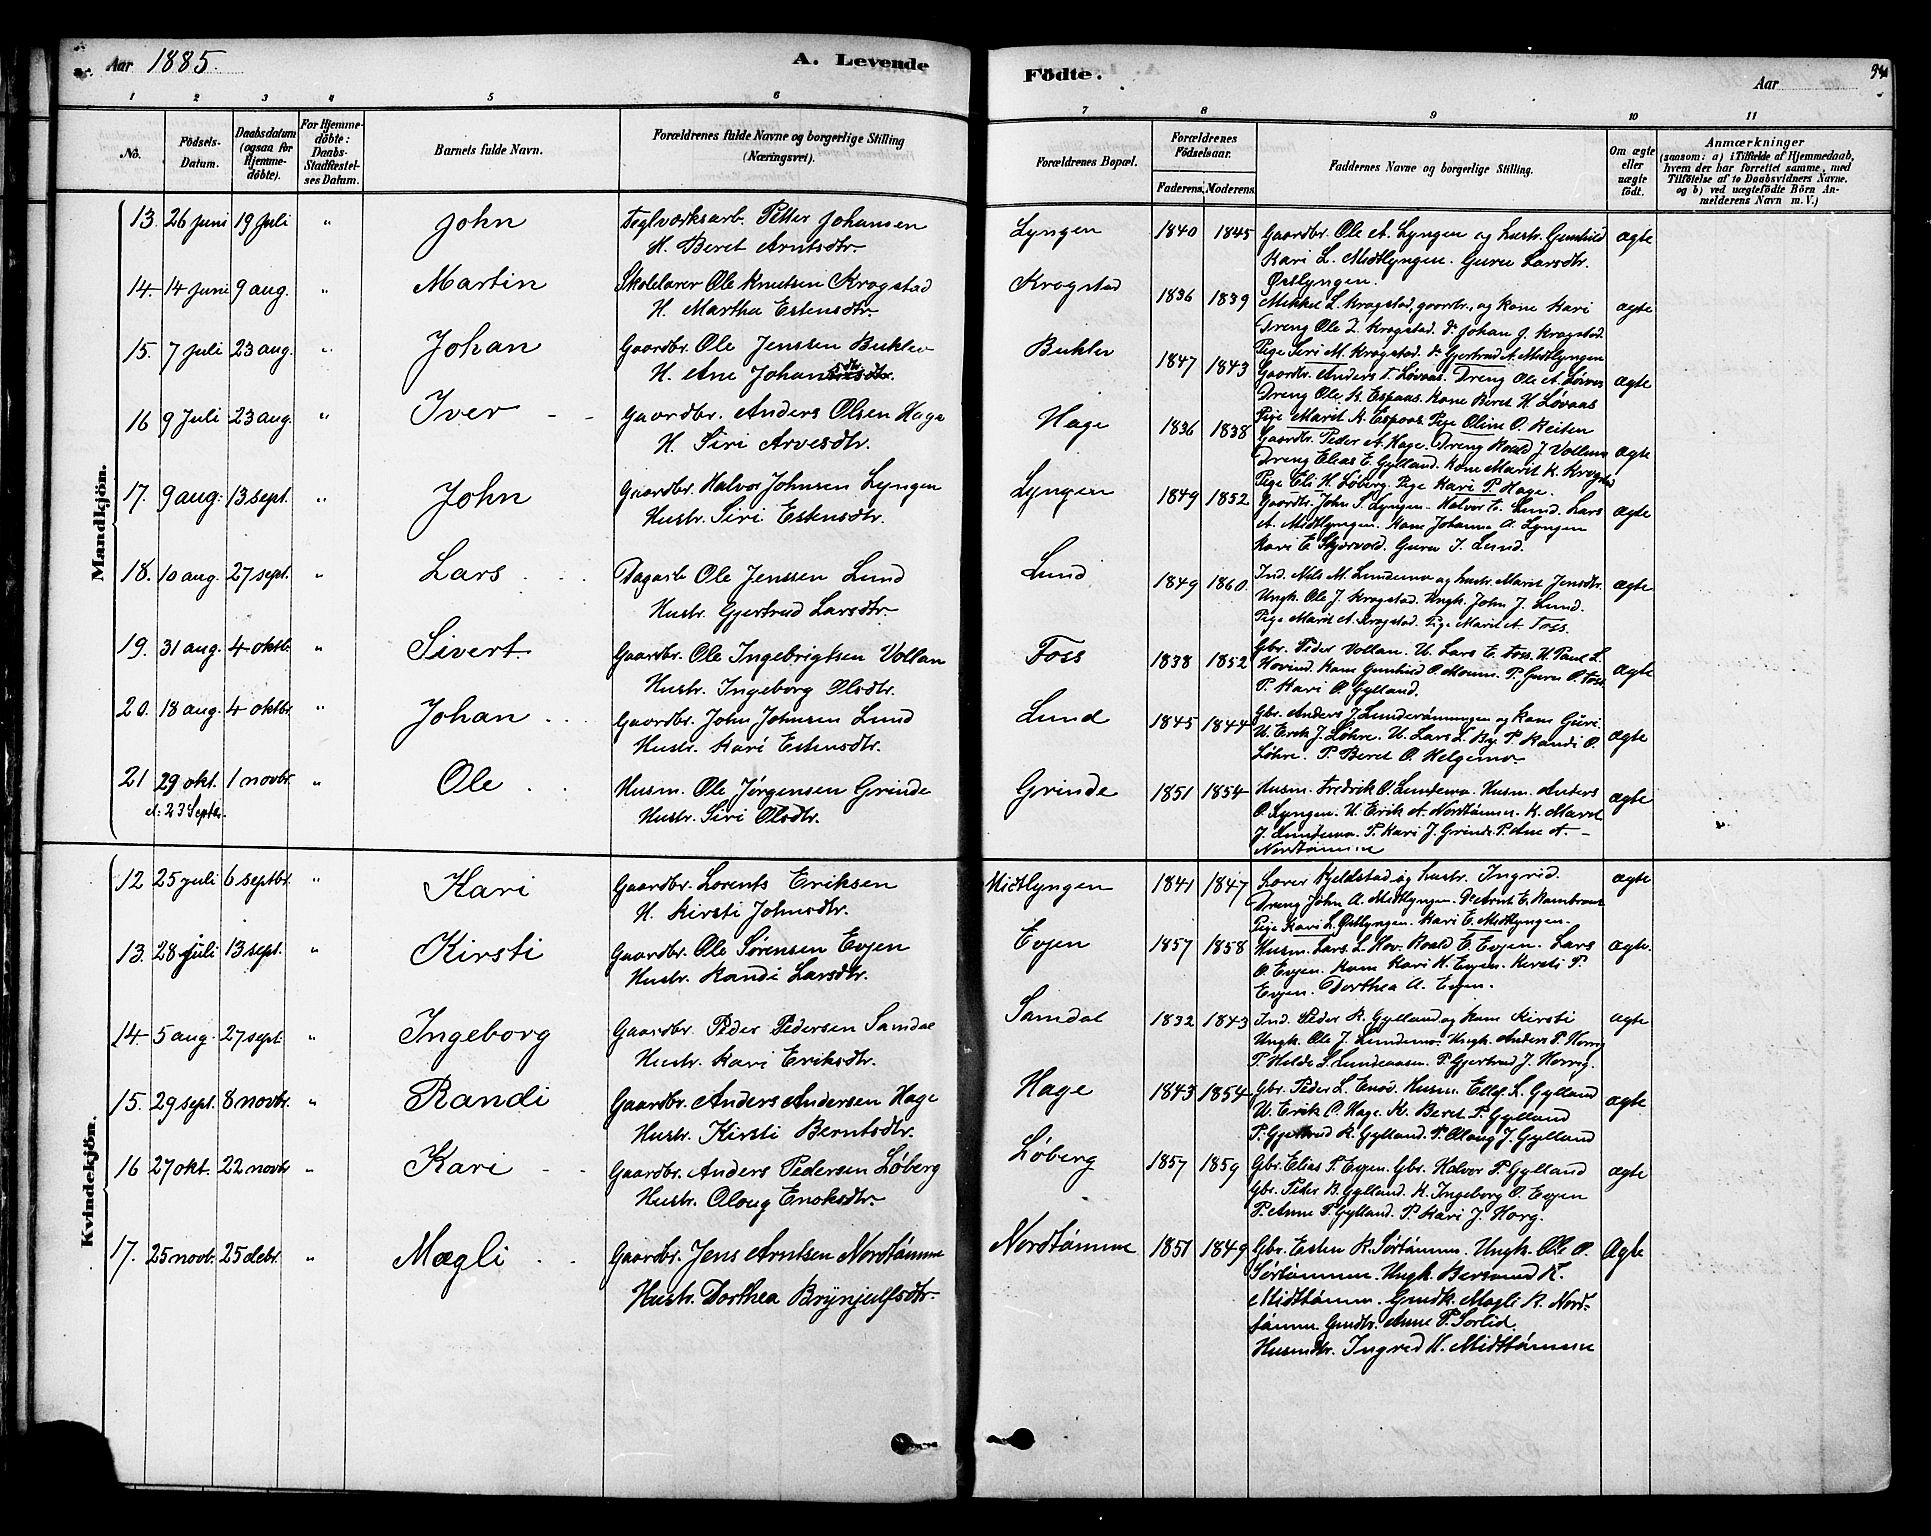 Aar 1885.
A. Levende
Födte.
Aar
1 2 3 4 5 6 7 8 9 10 11
No.
Födsels-Datum.
Daabsdatum (ogsaa for Hjemme-döbte).
For Hjemme-döbte: Daabs-Stadfæstel-ses Datum.
Barnets fulde Navn.
Forældrenes fulde Navne og borgerlige Stilling (Næringsvei).
Forældrenes Bopæl.
Forældrenes Födselsaar.
Faderens. Moderens.
Faddernes Navne og borgerlige Stilling.
Om ægte eller uægte födt.
Anmærkninger
(saasom: a) i Tilfælde af Hjemmedaab, hvem der har forrettet samme, med Tilföielse af to Daabsvidners Navne, og b) ved uægtefödte Börn An-melderens Navn m. V.)
Mandkjön.
13. 26 juni 19 juli " John Teglværksarb. Petter Johansen Lyngen 1840 1845 Gaardbr. Ole A. Lyngen og hustr. Gunhild ægte
H. Beret Arntsdtr. Kari L. Midtlyngen. Guru Larsdtr.
Østlyngen.
14. 14 juni 9 aug. " Martin Skolelærer Ole Knutsen Krogstad Krogstad 1836 1839 Mikkel L. Krogstad, gaardbr., og kone Kari ægte
H. Martha Estensdtr. Dreng Ole L. Krogstad. Do Johan J. Krogstad.
Pige Siri M. Krogstad. Do Gjertrud A. Midtlyngen
15. 7 juli 23 aug. " Johan Gaardbr. Ole Jenssen Buklev Buklev 1847 1843 Gaardbr. Anders T. Løvaas. Dreng Ole A. Løvaas ægte
H. Ane Johansdtr. Dreng Ole K. Espaas. Kone Beret H. Løvaas
Pige Marit K. Espaas. Pige Oline O. Reiten
16 9 juli 23 aug. " Iver Gaardbr. Anders Olsen Hage Hage 1836 1838 Gaardbr. Peder A. Hage. Dreng Roald J. Vollan ægte
H. Siri Arvesdtr. Dreng Elias E. Gylland. Kone Marit K. Krogstad
Pige Eli H. Løberg. Pige Kari P. Hage.
17. 9 aug. 13 sept. " John Gaardbr. Halvor Johnsen Lyngen Lyngen 1849 1852 Gaardbr. John S. Lyngen. Halvor E. Lund. Lars ægte
Hustr. Siri Estensdtr. A. Midtlyngen. Kone Johanna A. Lyngen
Kari E. Skjervold. Guru J. Lund.
18. 10 aug. 27 sept. " Lars Dagarb. Ole Jenssen Lund Lund 1849 1860 Ind. Nels M. Lundemo og hustr. Marit Jensdtr. ægte
Hustr. Gjertrud Larsdtr. Ungk. Ole J. Krogstad. Ungk. John J. Lund.
Pige Marit A. Krogstad. Pige Marit A. Foss.
19. 31 aug. 4 oktb. " Sivert Gaardbr. Ole Ingebrigtsen Vollan Foss 1838 1852 Gbr. Peder Vollan. U. Lars E. Foss. U. Paul L. ægte
Hustr. Ingeborg Olsdtr. Hovind. Kone Gunhild O. Moum. P. Guru O. Foss
P. Kari O. Gylland.
20. 18 aug. 4 oktbr. " Johan Gaardbr. John Johnsen Lund Lund 1845 1844 Gbr. Anders J. Lunderønningen og kone Guri. ægte
Hustr. Kari Estensdtr. U. Erik J. Løhre. U. Lars L. By. P. Randi O.
Løhre. P. Beret O. Helgemo.
21 29 okt. 1 novbr. " Ole Husm. Ole Jørgensen Grinde Grinde 1851 1854 Husm. Fredrik O. Lundemo. Husm. Anders ægte
23 Septbr. Hustr. Siri Olsdtr. O. Lyngen. U. Erik A. Nordtømme. K. Marit
J. Lundemo. P. Kari J. Grinde. P. Ane A.
Nordtømme
Kvindekjön.
12 25 juli 6 septbr. " Kari Gaardbr. Lorents Eriksen Midtlyngen 1841 1847 Lærer Kjeldstad og hustr. Ingrid. ægte
H. Kirsti Johnsdtr. Dreng John A. Midtlyngen. Do Arnt E. Rambraut
Pige Kari L. Østlyngen. Kari E. Midtlyngen.
13. 28 juli 13 sept. " Kirsti Gaardbr. Ole Sørensen Evjen Evjen 1857 1858 Husm. Lars L. Hov. Roald E. Evjen. Lars ægte.
Hustr. Randi Larsdtr. O. Evjen. Kone Kari H. Evjen. Kersti P.
Evjen. Dorthea A. Evjen.
14. 5 aug. 27 sept. " Ingeborg Gaardbr. Peder Pedersen Samdal Samdal 1832 1843 Ind. Peder K. Gylland og kone Kirsti ægte
Hustr. Kari Eriksdtr. Ungk. Ole J. Lundemo. Ungk. Anders P. Horrig
P. Helde S. Lundeaasen. P. Gjertrud J. Horrig.
15. 29 sept. 8 novbr. " Randi Gaardbr. Anders Andersen Hage Hage 1843 1854 Gbr. Peder L. Enod. Husm. Ellef L. Gylland ægte
Hustr. Kirsti Berntsdtr. U. Erik O. Hage. K. Beret P. Gylland
P. Gjertrud K. Gylland. P. Oloug J. Gylland
16 27 okt. 22 novbr " Kari Gaardbr. Anders Pedersen Løberg Løberg 1857 1859 Gbr. Elias P. Evjen. Gbr. Halvor P. Gylland ægte
Hustr. Oloug Enoksdtr. Gbr. Peder B. Gylland. K. Ingeborg O. Evjen
P. Anne P. Gylland. P. Kari J. Horg.
17. 25 novb. 25 debr. " Mægli Gaardbr. Jens Arntsen Nordtømme Nordtømme 1851 1849 Gbr. Esten R. Sørtømme. Ungk. Ole O. Ægte
Hustr. Dorthea Brynjulfsdtr. Sørtømme. Ungk. Bersvend K.
Midttømme. Gmdk. Magli R. Nord-
tømme Gmdtr. Anne P. Sorlid.
Husmdtr. Ingrid H. Midttømme